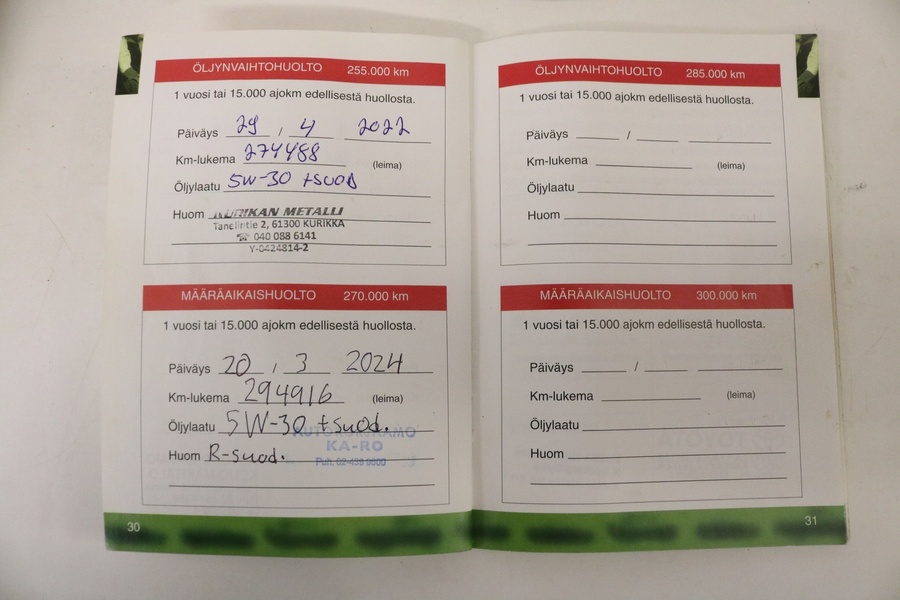 ÖLJYNVAIHTOHUOLTO 255.000 km
1 vuosi tai 15.000 ajokm edellisestä huollosta.
Päiväys 29 / 4 2022
Km-lukema 274488 (leima)
Öljylaatu 5W-30 +suod
Huom KURIKAN METALLI
Tanelintie 2, 61300 KURIKKA
☎ 040 088 6141
Y-0424814-2
MÄÄRÄAIKAISHUOLTO 270.000 km
1 vuosi tai 15.000 ajokm edellisestä huollosta.
Päiväys 20 / 3 2024
Km-lukema 294916 (leima)
Öljylaatu 5W-30 +suod.
KA-RO
Huom R-suod.
Puh.
30
ÖLJYNVAIHTOHUOLTO 285.000 km
1 vuosi tai 15.000 ajokm edellisestä huollosta.
Päiväys /
Km-lukema (leima)
Öljylaatu
Huom
MÄÄRÄAIKAISHUOLTO 300.000 km
1 vuosi tai 15.000 ajokm edellisestä huollosta.
Päiväys /
Km-lukema (leima)
Öljylaatu
Huom
31